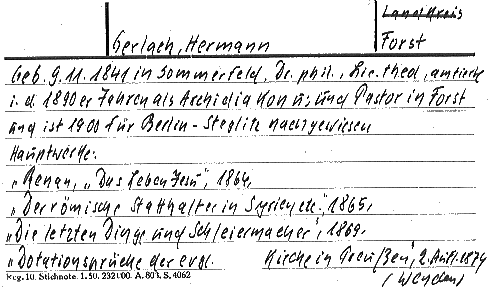 Landkreis
Gerlach, Hermann Forst
Geb. 9. 11. 1841 in Sommerfeld. Dr. phil., Lic. theol, amtierte
i. d. 1890er Jahren als Archidiakonus und Pastor in Forst
und ist 1900 für Berlin-Steglitz nachgewiesen
Hauptwerke:
„Renan, „Das Leben Jesu", 1864,
„Der römische Statthalter in Syrien etc." 1865,
„Die letzten Dinge und Schleiermacher", 1869,
„Dotationsprüche der evgl. Kirche in Preußen", 2. Aufl. 1874
Reg. 10. Stichnote. 1.50. 232100. A. 803. S. 4062